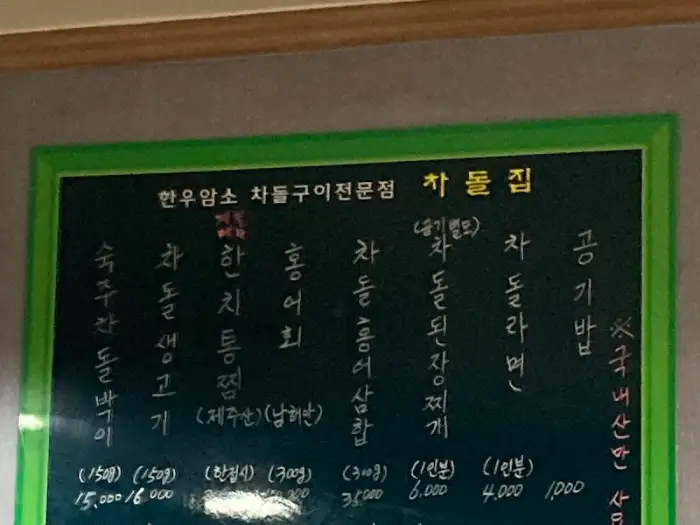 한우암소 차돌구이전문점 차돌집
숙주차돌박이
(150g)
15,000
차돌생고기
(150g)
16,000
한치통찜
(제주산)
(한접시)
홍어회
(남해안)
(300g)
차돌홍어삼합
(300g)
35,000
(공기별도)
차돌된장찌개
(1인분)
6,000
차돌라면
(1인분)
4,000
공기밥
1,000
※국내산만